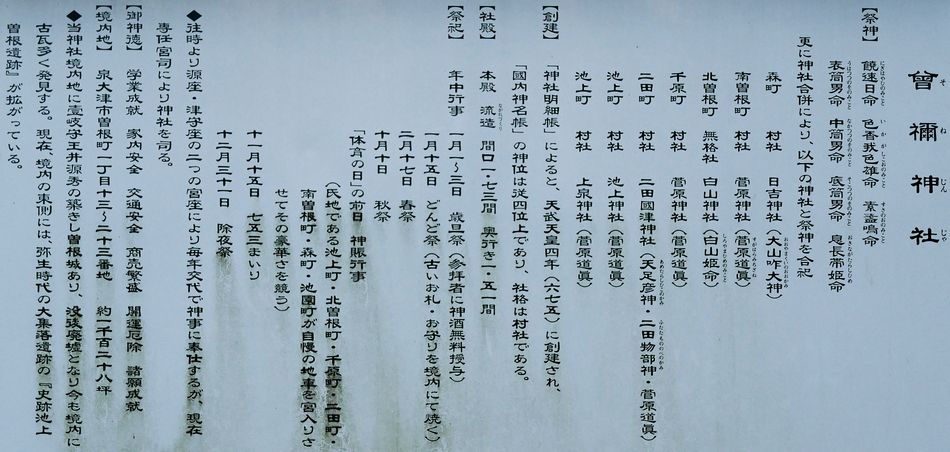 曾禰神社
そねじんじゃ
【祭神】
饒速日命 色香我色雄命 素盞嗚命
表筒男命 中筒男命 底筒男命 息長帯姫命
更に神社合併により、以下の神社と祭神を合祀
森町 村社 日吉神社(大山咋大神)
南曽根町 村社 菅原神社(菅原道眞)
北曽根町 無格社 白山神社(白山姫命)
千原町 村社 菅原神社(菅原道眞)
二田町 村社 二田國津神社(天足彦神・二田物部神・菅原道眞)
池上町 村社 池上神社(菅原道眞)
池上町 村社 上泉神社(菅原道眞)
【創建】 「神社明細帳」によると、天武天皇四年(六七五)に創建され、
「國内神名帳」の神位は従四位上であり、社格は村社である。
【社殿】 本殿 流造 間口一・七三間 奥行き一・五一間
【祭祀】 年中行事 一月一〜三日 歳旦祭(参拝者に神酒無料授与)
一月十五日 どんど祭(古いお札・お守りを境内にて焼く)
二月十七日 春祭
十月十日 秋祭
「体育の日」の前日 神賑行事
(氏地である池上町・北曽根町・千原町・二田町・
南曽根町・森町・池園町が自慢の地車を宮入りさ
せてその豪華さを競う)
十一月十五日 七五三まいり
十二月三十一日 除夜祭
◆往時より源座・津守座の二つの宮座により毎年交代で神事に奉仕するが、現在
専任宮司により神社を司る。
【御神徳】 学業成就 家内安全 交通安全 商売繁盛 開運厄除 諸願成就
【境内地】 泉大津市曽根町一丁目十三〜二十三番地 約一千百二十八坪
◆当神社境内地に壹岐守玉井源秀の築きし曽根城あり、没後廃墟となり今も境内に
古瓦多く発見する。現在、境内の東側には、弥生時代の大集落遺跡の『史跡池上
曽根遺跡』が拡がっている。